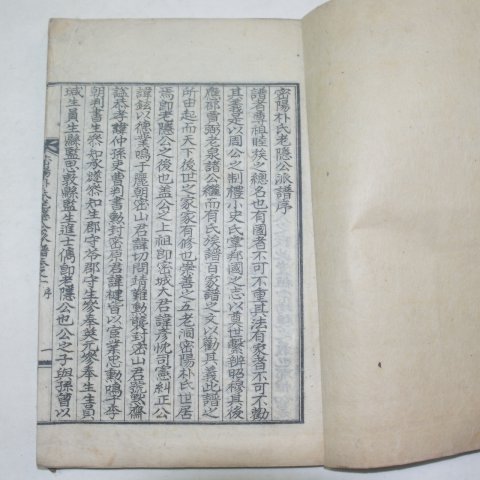 密陽朴氏老隱公派譜序
譜者尊祖睦族之總名也有國者不可不重其法有家者不可不勸
其義是以周公之制禮小史氏掌邦國之志以奠世繫辨昭穆其後
應邵賈弼老泉諸公繼而有氏族譜百家譜之文以勸其義此譜之
所由起而天下後世之家家有修也崇善之五老洞密陽朴氏世居
焉卽老隱公之後也盖公之上祖卽密城大君諱彦忱司憲糾正公
諱鉉以德業鳴于麗朝密山君諱切問靖難勳襲封密山君號默齋
諡恭孝諱仲孫吏曹判書勳封密原君諱楗皆以宣業忠勳鳴于李
朝判書生 知承蹤 知生郡守 郡守生參奉英元參奉生生員
城生員生縣監思敦縣監生進士儁卽老隱公也公之子與孫曾以
密陽朴氏老隱公派譜卷之一 序 一